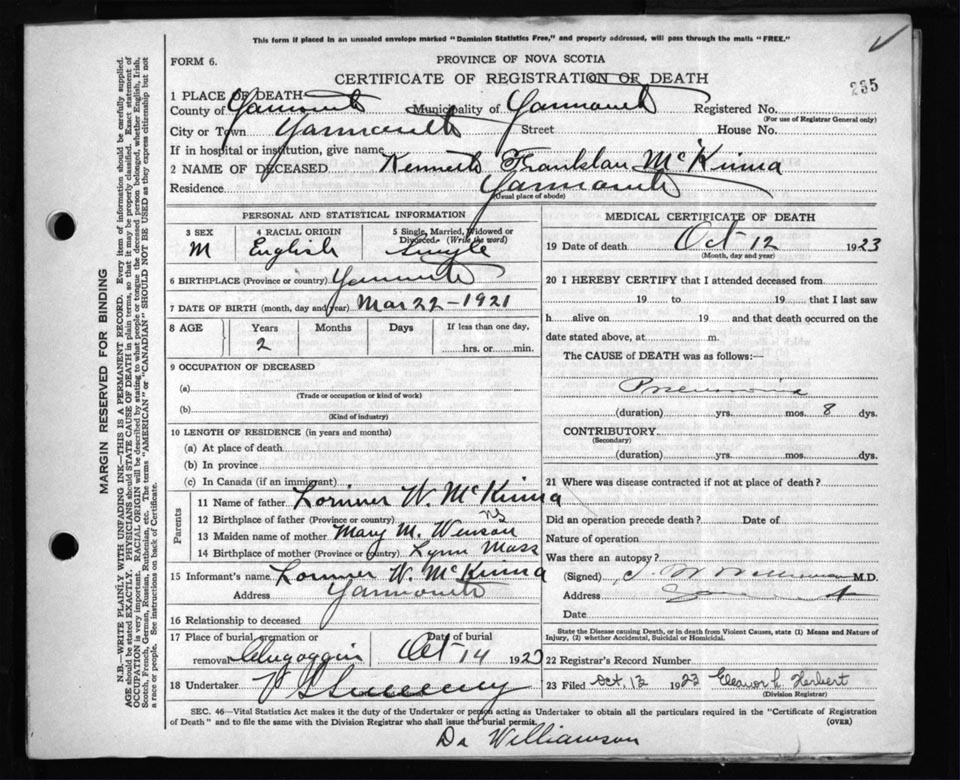 This form if placed in an unsealed envelope marked "Dominion Statistics Free," and properly addressed, will pass through the mails "FREE."
FORM 6.
PROVINCE OF NOVA SCOTIA
CERTIFICATE OF REGISTRATION OF DEATH
235
1 PLACE OF DEATH
County of Yarmouth Municipality of Yarmouth Registered No.
(For use of Registrar General only)
City or Town Yarmouth Street House No.
If in hospital or institution, give name
2 NAME OF DECEASED Kenneth McKinna
Residence Yarmouth
(Usual place of abode)
PERSONAL AND STATISTICAL INFORMATION
3 SEX M
4 RACIAL ORIGIN English
5 Single, Married, Widowed or Divorced (Write the word) Single
6 BIRTHPLACE (Province or country) Yarmouth
7 DATE OF BIRTH (month, day and year) Mar 22-1921
8 AGE Years Months Days If less than one day,
2 hrs. or min.
9 OCCUPATION OF DECEASED
(a)
(Trade or occupation or kind of work)
(b)
(Kind of industry)
10 LENGTH OF RESIDENCE (in years and months)
(a) At place of death
(b) In province
(c) In Canada (if an immigrant)
Parents
11 Name of father W. McKinna
12 Birthplace of father (Province or country) NS
13 Maiden name of mother Mary M.
14 Birthplace of mother (Province or country) Lynn Mass
15 Informant's name W. McKinna
Address Yarmouth
16 Relationship to deceased
17 Place of burial, cremation or removal Date of burial Oct 14 1923
18 Undertaker V S Sweeny
MEDICAL CERTIFICATE OF DEATH
19 Date of death Oct 12 1923
(Month, day and year)
20 I HEREBY CERTIFY that I attended deceased from
19 to 19 that I last saw
h alive on 19 and that death occurred on the
date stated above, at m.
The CAUSE of DEATH was as follows:—
Pneumonia
(duration) yrs. mos. 8 dys.
CONTRIBUTORY
(Secondary)
(duration) yrs. mos. dys.
21 Where was disease contracted if not at place of death?
Did an operation precede death? Date of
Nature of operation
Was there an autopsy?
(Signed) Williamson M.D.
Address Yarmouth
Date
State the Disease causing Death, or in death from Violent Causes, state (1) Means and Nature of
Injury, (2) whether Accidental, Suicidal or Homicidal.
22 Registrar's Record Number
23 Filed Oct. 13 1923 Eleanor L. Herbert
(Division Registrar)
SEC. 46—Vital Statistics Act makes it the duty of the Undertaker or person acting as Undertaker to obtain all the particulars required in the "Certificate of Registration
of Death" and to file the same with the Division Registrar who shall issue the burial permit. (OVER)
Dr Williamson
MARGIN RESERVED FOR BINDING
N.B.—WRITE PLAINLY WITH UNFADING INK—THIS IS A PERMANENT RECORD. Every item of information should be carefully supplied.
AGE should be stated EXACTLY. PHYSICIANS should STATE CAUSE OF DEATH in plain terms, so that it may be properly classified. Exact statement of
OCCUPATION is very important. RACIAL ORIGIN will be described by stating to what people or tongue the deceased person belonged, whether English, Irish,
Scotch, French, German, Russian, Ruthenian, etc. The terms "AMERICAN" or "CANADIAN" SHOULD NOT BE USED as they express citizenship but not
a race or people. See instructions on back of Certificate.